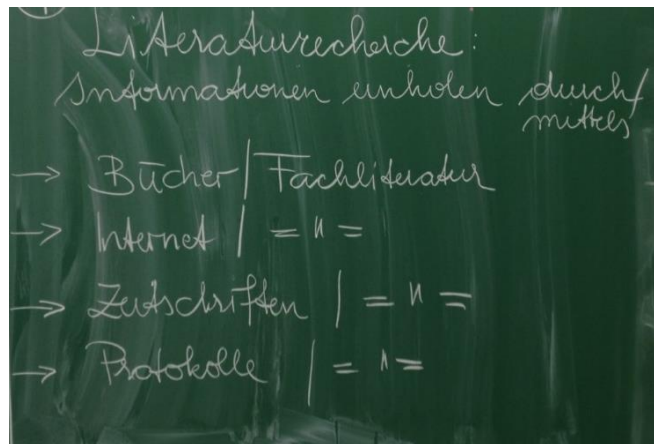 1
Literaturrecherche:
Informationen einholen durch/
mittels
→ Bücher | Fachliteratur
→ Internet | = " =
→ Zeitschriften | = " =
→ Protokolle | = " =